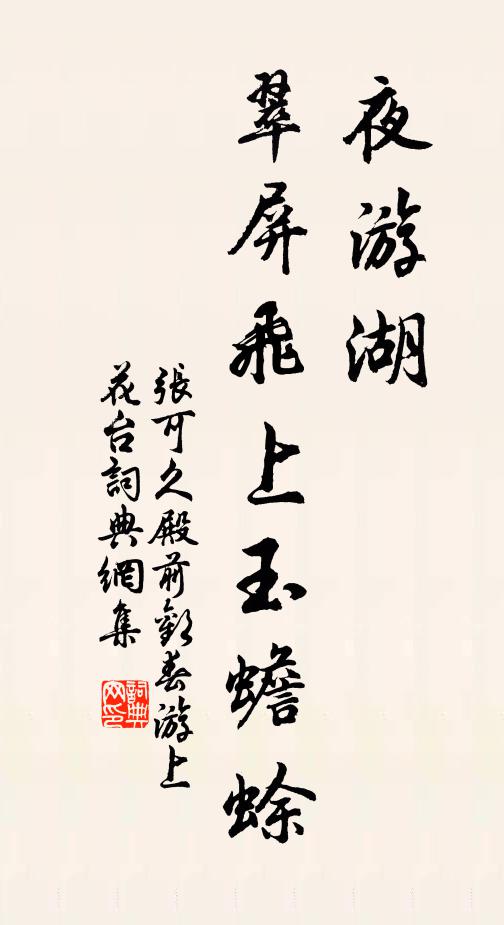 夜游湖
翠屏飛上玉蟾蜍
張可久殿前歡春游上
花台詞典網集
詞典
网印